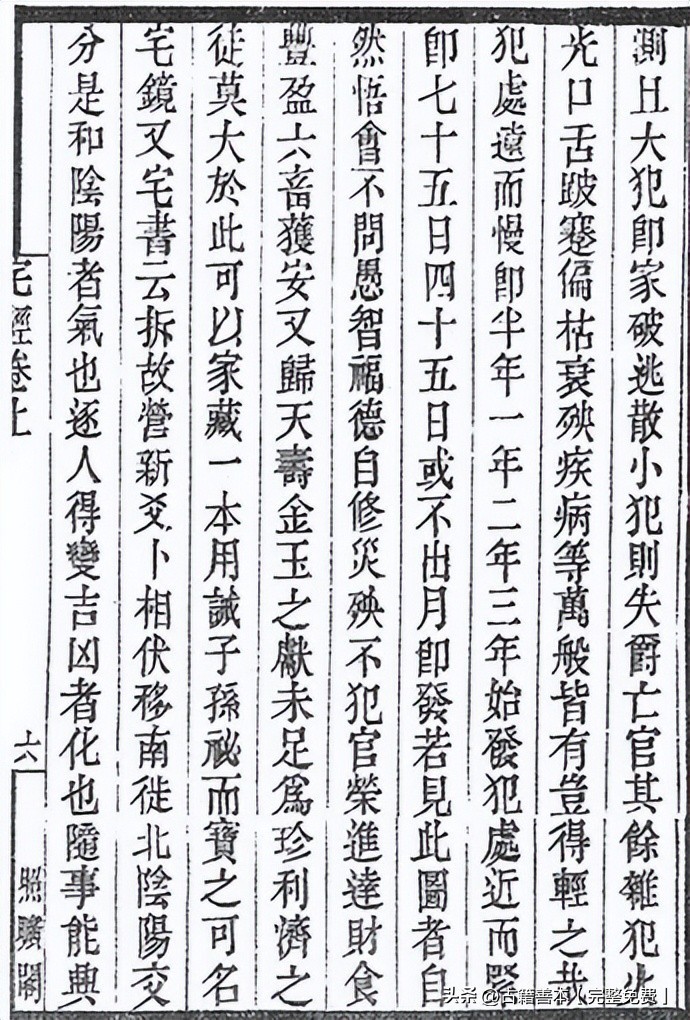 測且大犯即家破逃散小犯則失爵亡官其餘雜犯火
光口舌跛蹇偏枯衰殃疾病等萬般皆有豈得輕之哉
犯處遠而慢即半年一年二年三年始發犯處近而緊
即七十五日四十五日或不出月即發若見此圖者自
然悟會不問愚智福德自修災殃不犯官榮進達財食
豐盈六畜獲安又歸天壽金玉之獻未足爲珍利濟之
徒莫大於此可以家藏一本用誡子孫祕而寶之可名
宅鏡又宅書云拆故營新爻卜相伏移南徙北陰陽交
分是和陰陽者氣也逐人得變吉凶者化也隨事能興
宅經卷上
六
照曠閣
頭条 @古籍善本【完整免费】